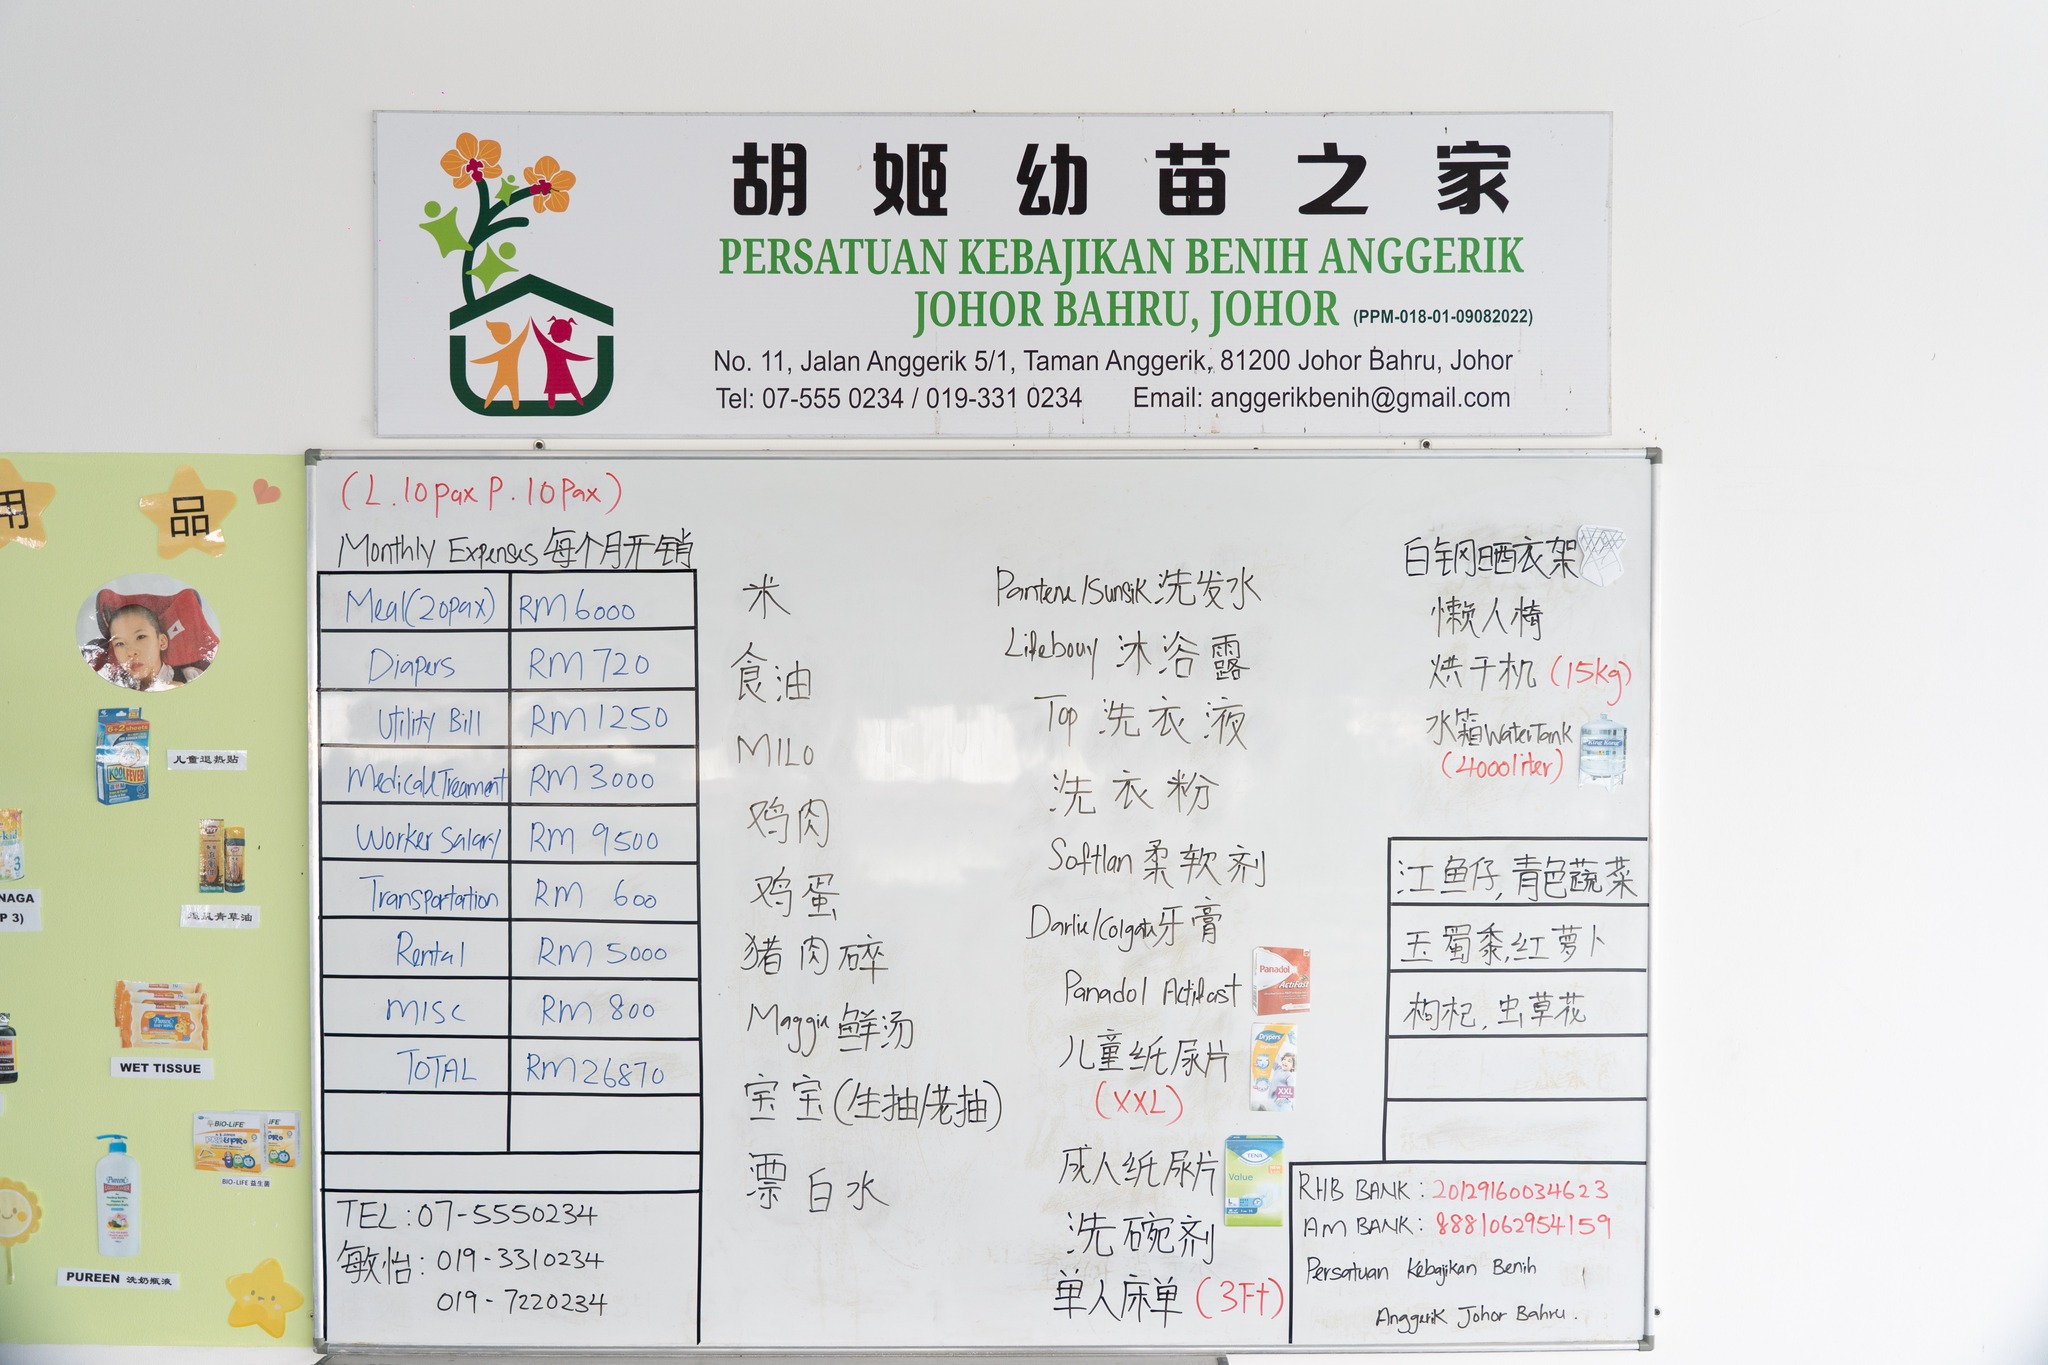 胡姬幼苗之家
PERSATUAN KEBAJIKAN BENIH ANGGERIK
JOHOR BAHRU, JOHOR (PPM-018-01-09082022)
No. 11, Jalan Anggerik 5/1, Taman Anggerik, 81200 Johor Bahru, Johor
Tel: 07-555 0234 / 019-331 0234 Email: anggerikbenih@gmail.com
用 品
KOOLFEVER
儿童退热贴
NAGA
P 3)
青草油
WET TISSUE
BIO-LiFE
BIO-LiFE 益生菌
Pureen
PUREEN 洗奶瓶液
(L.10pax P.10Pax)
Monthly Expenses 每个月开销
Meal(20pax) RM 6000
Diapers RM 720
Utility Bill RM 1250
Medical&Treament RM 3000
Worker Salary RM 9500
Transportation RM 600
Rental RM 5000
MISC RM 800
TOTAL RM 26870
TEL: 07-5550234
敏怡: 019-3310234
019-7220234
米
食油
MILO
鸡肉
鸡蛋
猪肉碎
Maggie 鲜汤
宝宝(生抽/老抽)
漂白水
Pantene/Sunsik 洗发水
Lifebouy 沐浴露
Top 洗衣液
洗衣粉
Softlan 柔软剂
Darlie/Colgate 牙膏
Panadol Actifast
Panadol
ActiFast
儿童纸尿片
(XXL)
Drypers
XXL
成人纸尿片
TENA
Value
洗碗剂
单人床单 (3Ft)
白钢晒衣架
懒人椅
烘干机 (15kg)
水箱 Water Tank
(4000liter)
King Kong
江鱼仔, 青色蔬菜
玉蜀黍, 红萝卜
枸杞, 虫草花
RHB BANK: 20129160034623
AM BANK: 8881062954159
Persatuan Kebajikan Benih
Anggerik Johor Bahru.